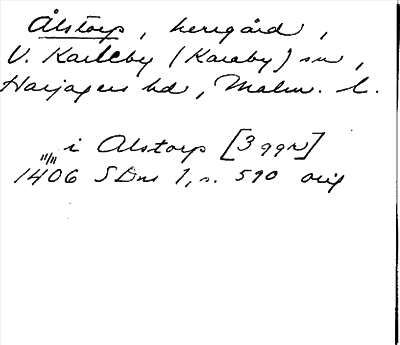 Ålstorp, herregård,
V. Karleby (Karaby) sn,
Harjagers hd, Malm. l.
i Alstorp [3 ggr]
11/11
1406 SDns 1, s. 590 orig